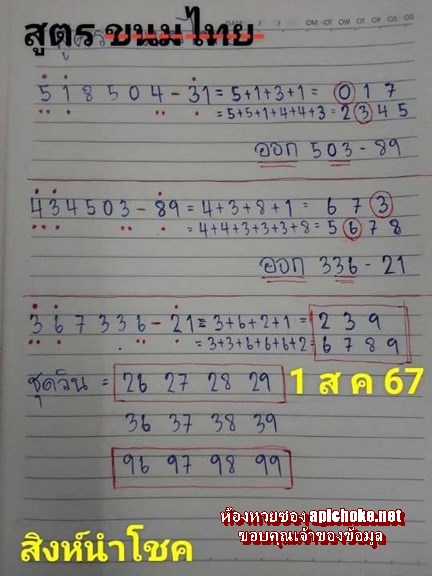 สูตร ขนมไทย
518504-31 = 5+1+3+1 = 0 1 7
= 5+5+1+4+4+3 = 2 3 4 5
ออก 503-89
434503-89 = 4+3+8+1 = 6 7 3
= 4+4+3+3+3+8 = 5 6 7 8
ออก 336-21
367336-21 = 3+6+2+1 = 2 3 9
= 3+3+6+6+6+2 = 6 7 8 9
ชุดวิน = 26 27 28 29
1 ส ค 67
36 37 38 39
96 97 98 99
ห้องหวยซอง apichoke.net
ขอบคุณเจ้าของข้อมูล
สิงห์นำโชค